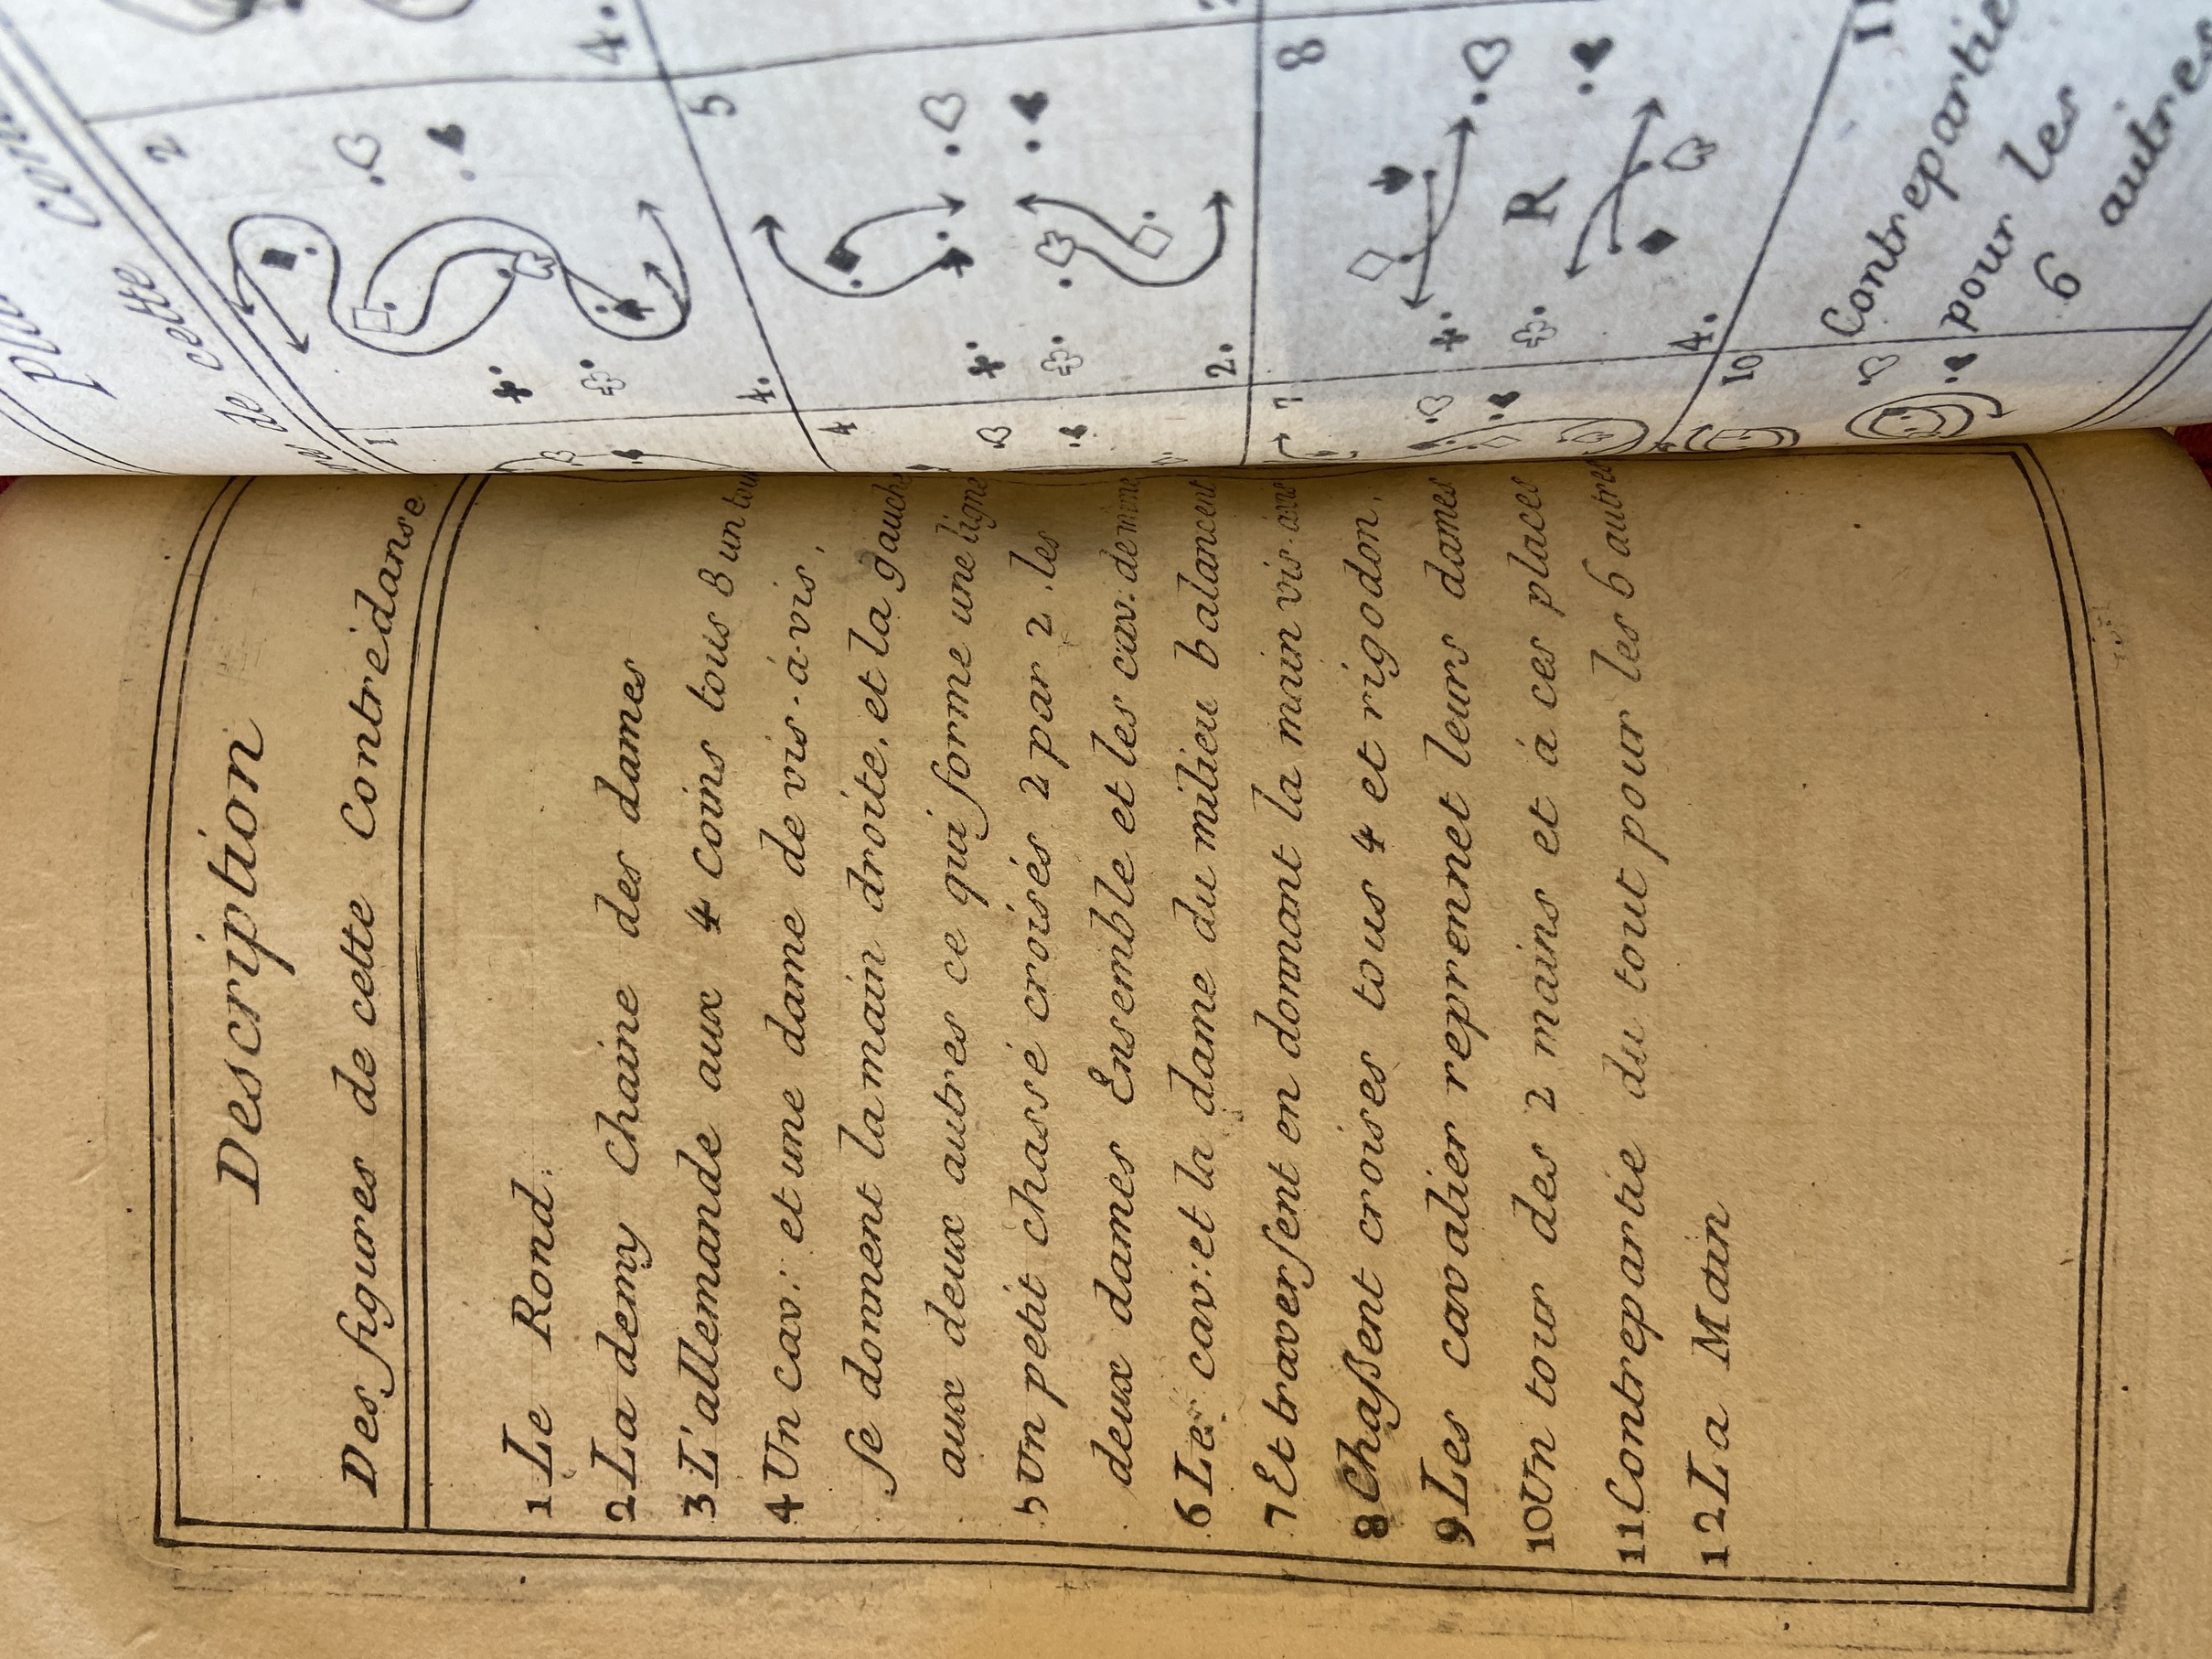 Description
Des figures de cette Contredanse
1 Le Rond.
2 La demy Chaine des dames
3 L'allemande aux 4 Coins tous 8 un tour
4 Un Cav: et une dame de vis-á-vis,
se donnent la main droite, et la gauche
aux deux autres ce qui forme une ligne
5 Un petit chassé croisés 2 par 2. les
deux dames Ensemble et les cav: de même
6 Le cav: et la dame du milieu balancent
7 Et traversent en donnant la main vis-
8 Chassent croises tous 4 et rigodon,
9 Les cavalier reprennet leurs dames
10 Un tour des 2 mains et á ces places
11 Contrepartie du tout pour les 6 autres
12 La Main
de cette
1
2
4.
4.
4
5
2.
7
8
R
4.
10
11
Contrepartie
pour les
6 autres